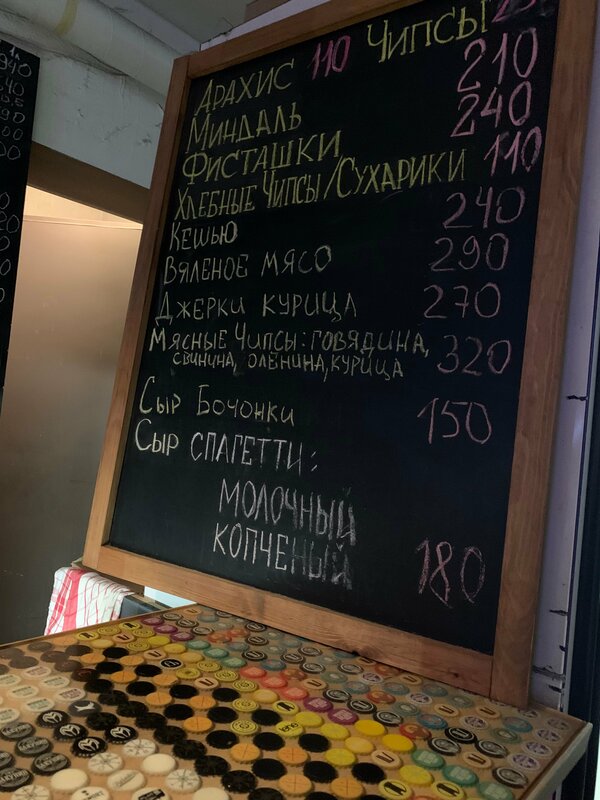 АРАХИС 110 ЧИПСЫ
МИНДАЛЬ 210
ФИСТАШКИ 240
ХЛЕБНЫЕ ЧИПСЫ/СУХАРИКИ 110
КЕШЬЮ 240
ВЯЛЕНОЕ МЯСО 290
ДЖЕРКИ КУРИЦА 270
МЯСНЫЕ ЧИПСЫ: ГОВЯДИНА, 320
СВИНИНА, ОЛЕНИНА, КУРИЦА
СЫР БОЧОНКИ 150
СЫР СПАГЕТТИ:
МОЛОЧНЫЙ
КОПЧЕНЫЙ 180